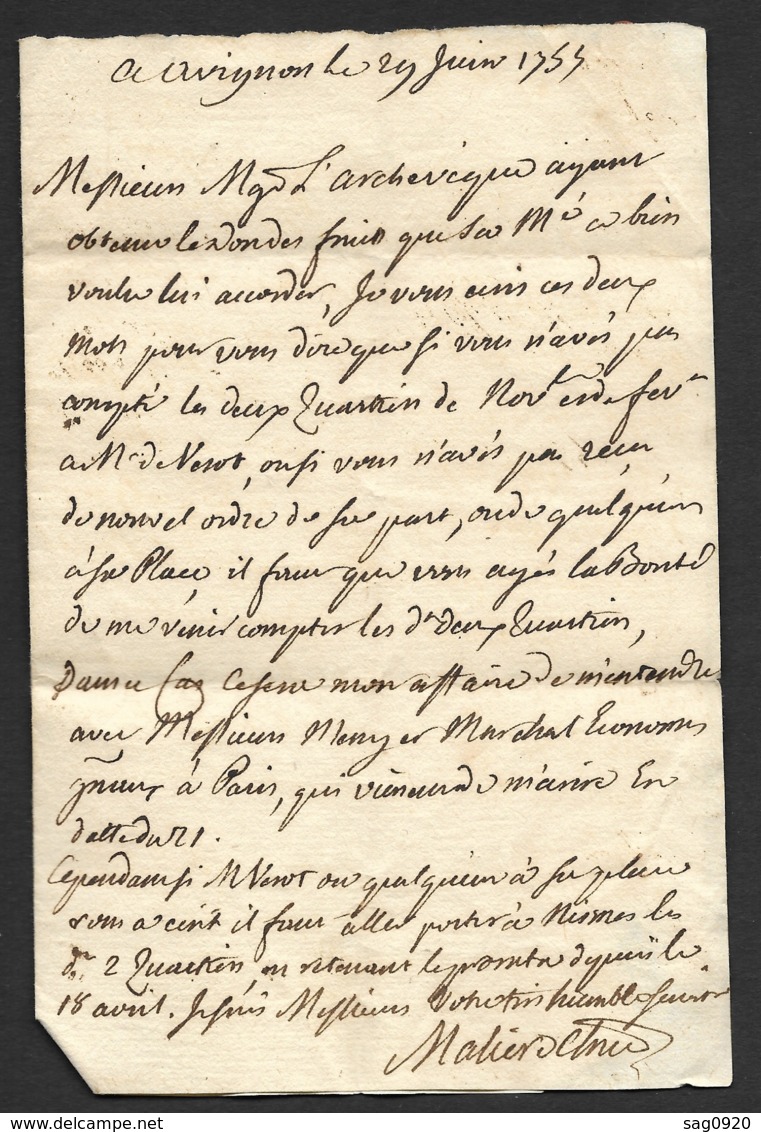 a avignon le 29 Juin 1755
Messieurs Mgr L'archevêque ayant
obtenu le don des fruits que Sa Mté a bien
voulu lui accorder, Je vous ecris ces deux
mots pour vous dire que si vous n'avés pas
compté les deux Quartiers de Novbre et de fevr
a Mr de Verot, ou si vous n'avés pas recu
de nouvel ordre de sa part, ou de quelqu'un
à sa Place, il faut que vous ayés la Bonté
de me venir compter les dts deux Quartiers,
Dans ce cas ce sera mon affaire de m'entendre
avec Messieurs Meny et Marchal Economes
gnaux à Paris, qui viennent de m'ecrire En
datte du 21.
Cependant si M Verot ou quelqu'un à sa place
vous a ecrit il faut aller porter à Nismes les
dts 2 Quartiers, en retenant le prorata depuis le
18 avril. Je suis Messieurs Votre très humble servitr
Malier
sag0920